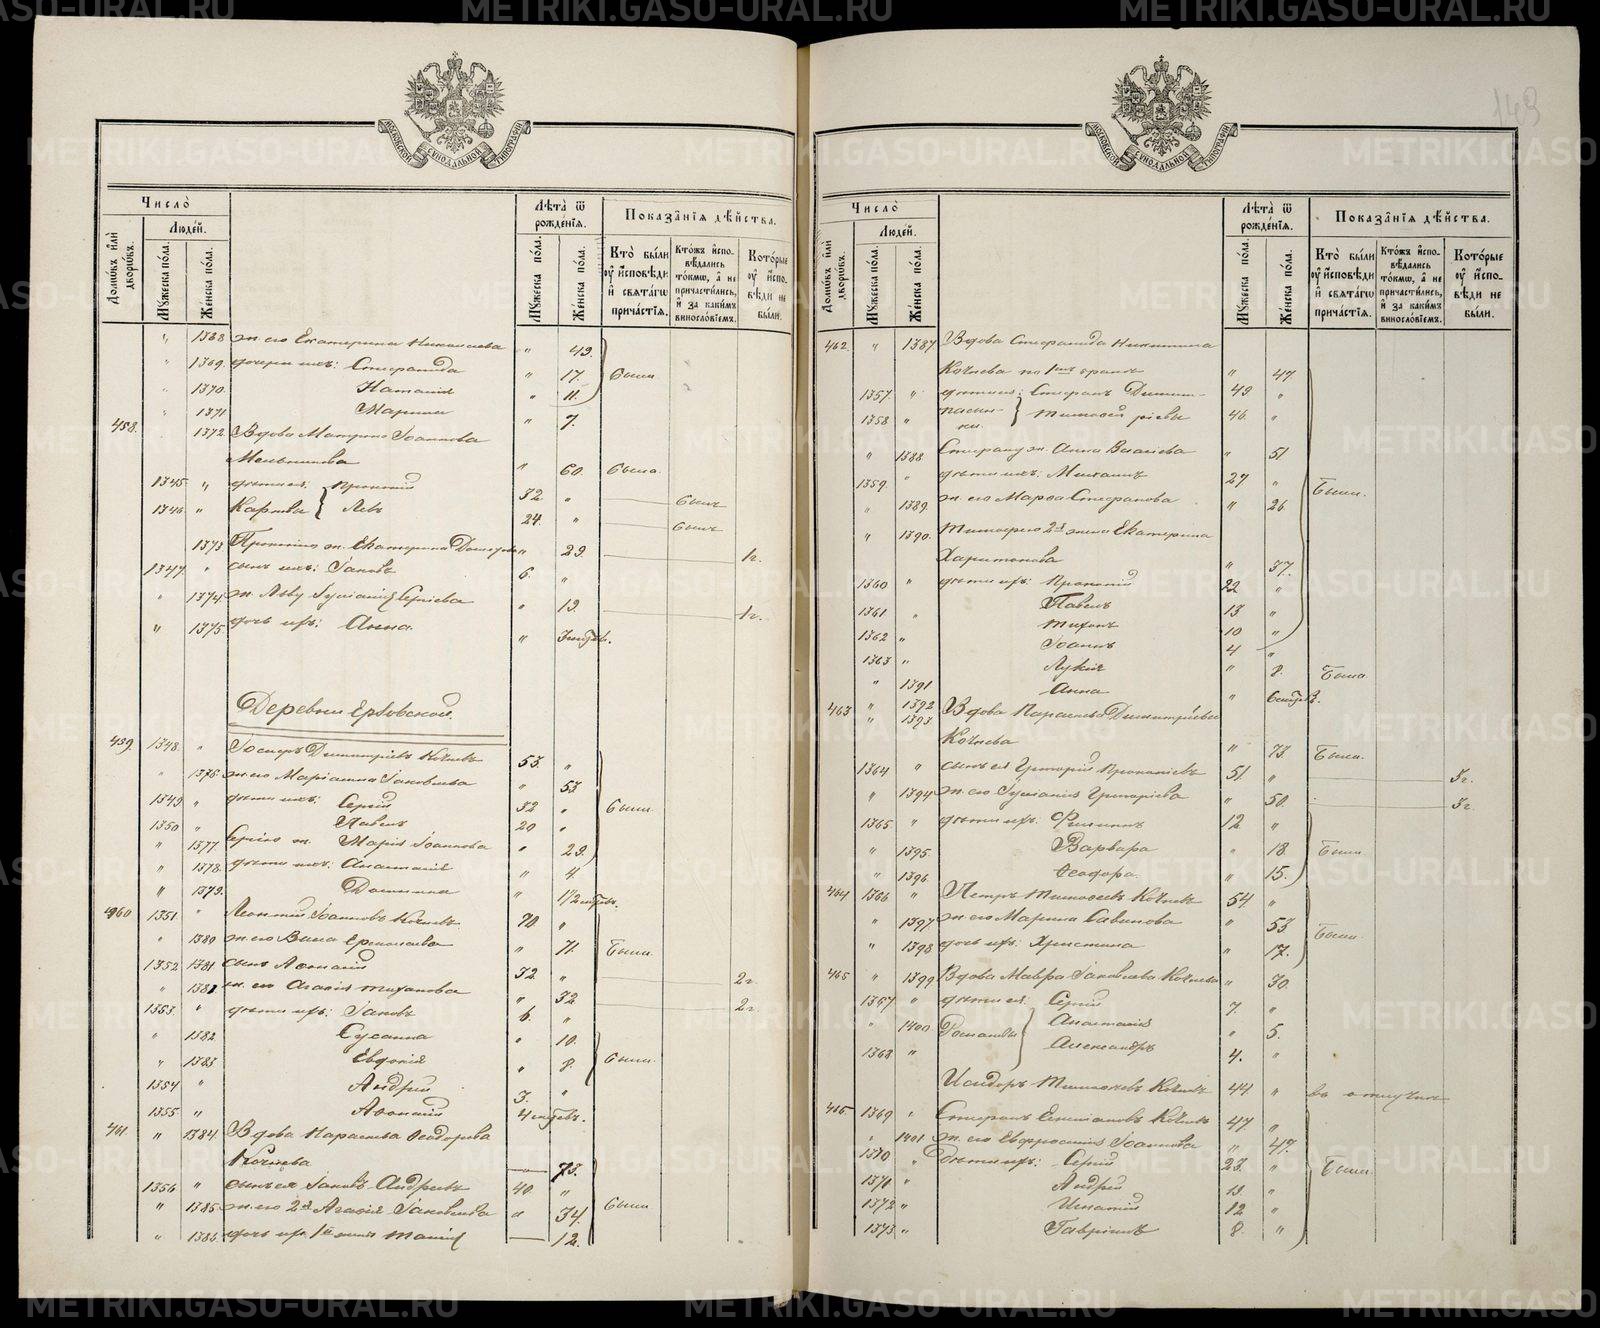 149
МОСКОВСКОЙ СУНОДАЛЬНОЙ ТИПОГРАФИИ
Число̀
Домѡ́въ и҆лѝ дворѡ́въ.
Люде́й.
Мꙋ́жеска по́ла.
Же́нска по́ла.
Лѣ́та ѿ рожде́нїѧ.
Мꙋ́жеска по́ла.
Же́нска по́ла.
Показа̑нїѧ дѣ́йства.
Кто̀ бы́ли ᲂу҆ и҆сповѣ́ди и҆ свѧта́гѡ прича́стїѧ.
Кто́жъ и҆сповѣ́дались то́кмѡ, а҆ не причасти́лись, и҆ за каки́мъ винословїемъ.
Кото́рые ᲂу҆ и҆сповѣ́ди не бы́ли.
" 1368 ж. его Екатерина Николаева " 49.
" 1369 дочери ихъ: Стефанида " 17. были
" 1370. Наталия " 11.
" 1371 Марина " 7.
458. 1372 Вдова Матрона Іоаннова
Мельникова " 60. была
1345 " дѣти ея: Прокопій 32 " быль
1346 " Карпова Левъ 24. " быль
1373 Прокопію ж. Екатерина " 29. 1г.
1347 " сынъ ихъ: Іаковъ 6. "
" 1374 ж. Льву Іуліанія Сергіева " 19. 1г.
" 1375 дочь ихъ: Анна. "
Деревни Ерзовской.
459. 1348. " Іосифъ Димитріевъ Кочневъ 53. "
" 1376 ж. его Маріамна Іаковлева " 53
1349 " дѣти ихъ: Сергій 32 " были.
1350 " Павелъ 20 "
" 1377 Сергію ж. Марія Іоаннова " 29.
" 1378. дѣти ихъ: Анастасія " 4.
" 1379. Домнина " 1/2
460 1351 " Леонтій Іоанновъ Кочневъ 70 "
" 1380 ж. его Васса Ермолаева " 71. Были.
1352 1381 сынъ Аѳанасій 32. " 2г.
" ж. его Агафія Тихонова " 32 2г.
1353 " дѣти ихъ: Іаковъ 6. "
" 1382 Сусанна " 10.
" 1383 Евдокія " 8. были.
1354 " Андрей 3. "
1355 " Аѳанасій 4
461 " 1384 Вдова Параскева Ѳеодорова
Кочнева — 73.
1356 " сынъ ея Іаковъ Андреевъ 40. "
" 1385 ж. его 2я Агафія Іаковлева " 34. были
" 1386 дочь — 12.
Число̀
Домѡ́въ и҆лѝ дворѡ́въ.
Люде́й.
Мꙋ́жеска по́ла.
Же́нска по́ла.
Лѣ́та ѿ рожде́нїѧ.
Мꙋ́жеска по́ла.
Же́нска по́ла.
Показа̑нїѧ дѣ́йства.
Кто̀ бы́ли ᲂу҆ и҆сповѣ́ди и҆ свѧта́гѡ прича́стїѧ.
Кто́жъ и҆сповѣ́дались то́кмѡ, а҆ не причасти́лись, и҆ за каки́мъ винословїемъ.
Кото́рые ᲂу҆ и҆сповѣ́ди не бы́ли.
462. " 1387 Вдова Стефанида Никитина
Кочнева по 1му браку " 47.
1357. " Стефанъ Димит- 49. "
1358 " пасын-ки. Тимоѳей ріевы 46. "
" 1388 Стефану ж. Анна Власіева " 51
1359. " дѣти ихъ: Михаилъ 27 " Были.
" 1389. ж. его Марѳа Стефанова " 26.
" 1390. Тимоѳею 2я жена Екатерина
Харитонова " 37.
1360 " дѣти ихъ: Прокопій 22 "
1361 " Павелъ 13 "
1362 " Тихонъ 10 "
1363 " Іоаннъ 4 "
" 1391 Лукія " 8. Была
" 1392 Анна " 6
463 " 1393 Вдова Параскева Димитріева
Кочнева " 73. Была.
1364 " сынъ ея Григорій Прокопіевъ 51. " 3г.
" 1394 ж. его Іуліанія Григоріева " 50. 3г.
1365 " дѣти ихъ: Филиппъ 12. "
" 1395. Варвара " 18. Были
" 1396 Ѳеодора. " 15.
464 1366 " Петръ Тимоѳеевъ Кочневъ 54 "
" 1397 ж. его Марина Саввинова " 53 Были
" 1398 дочь ихъ: Христина " 17.
465 " 1399 Вдова Мавра Іаковлева Кочнева " 30.
1367 " дѣти ея: Сергій 7. "
" 1400 Романовы Анастасія " 5.
1368 " Александръ 4. "
Исидоръ Тимоѳеевъ Кочневъ 44 " въ отлучкѣ
466 1369 " Стефанъ Кочневъ 47 "
" 1401 ж. его Евфросинія Іоаннова " 47.
1370 " Дѣти ихъ: Сергій 23. " Были
1371 " Андрей "
1372 " Игнатій 12 "
1373 " Гавріилъ 8. "
METRIKI.GASO-URAL.RU